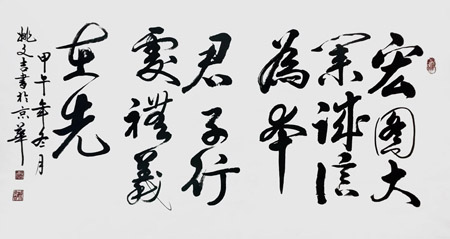 宏图大
業诚信
為本
君子行
處禮義
在先
甲午年冬月
姚文吉書於京華